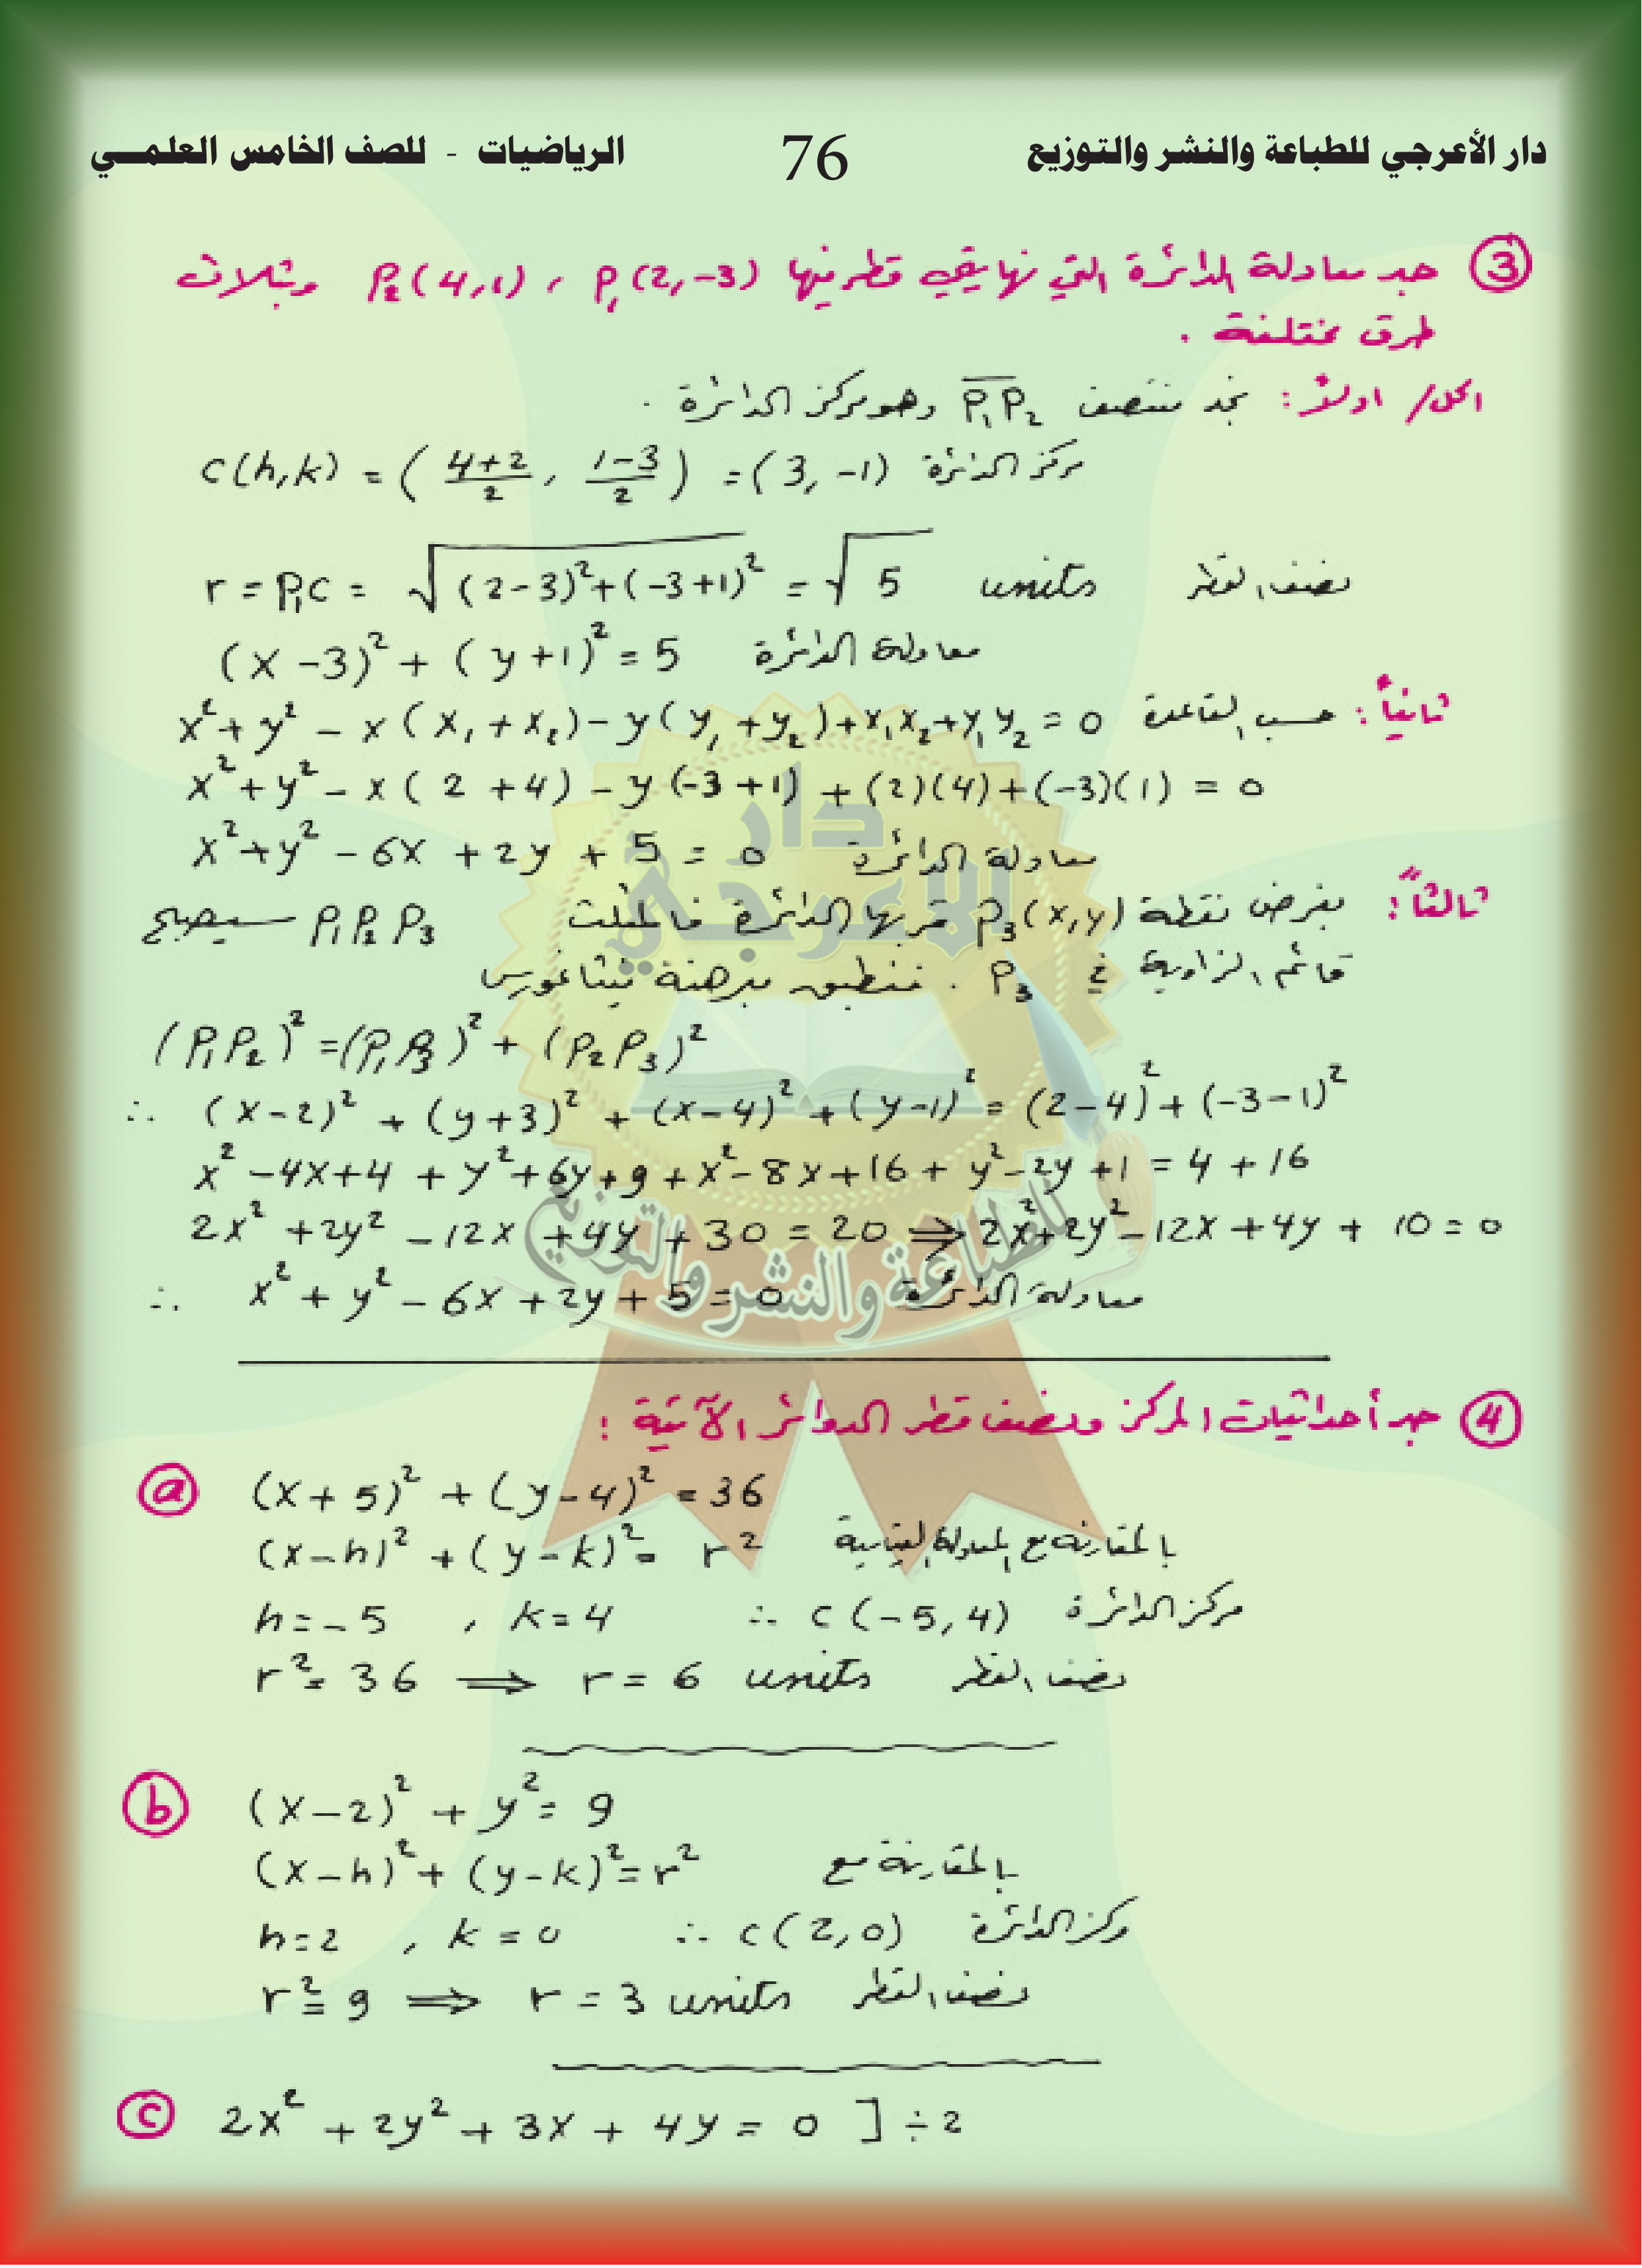 دار الأعرجي للطباعة والنشر والتوزيع 76 الرياضيات - للصف الخامس العلمـــي
③ جد معادلة الدائرة التي نهايتي قطر فيها P₁(2,-3) ، P₂(4,1) وبثلاث
طرق مختلفة .
الحل/ اولاً : نجد منتصف P₁P₂ وهو مركز الدائرة .
C(h,k) = (4+2/2 , 1-3/2) = (3,-1) مركز الدائرة
r = P₁C = √(2-3)²+(-3+1)² = √5 units نصف القطر
(x-3)² + (y+1)² = 5 معادلة الدائرة
ثانياً : حسب القاعدة x²+y² - x(x₁+x₂) - y(y₁+y₂)+x₁x₂+y₁y₂ = 0
x²+y² - x(2+4) - y(-3+1) + (2)(4)+(-3)(1) = 0
x²+y² - 6x + 2y + 5 = 0 معادلة الدائرة
ثالثاً : بفرض نقطة P₃(x,y) تمر بها الدائرة فالمثلث P₁P₂P₃ سيصبح
قائم الزاوية في P₃ . فنطبق مبرهنة فيثاغورس
(P₁P₂)² = (P₁P₃)² + (P₂P₃)²
∴ (x-2)² + (y+3)² + (x-4)² + (y-1)² = (2-4)² + (-3-1)²
x² -4x+4 + y²+6y+9 + x²-8x+16 + y²-2y+1 = 4+16
2x² + 2y² - 12x + 4y + 30 = 20 ⇒ 2x²+2y²-12x+4y+10=0
∴ x² + y² - 6x + 2y + 5 = 0 معادلة الدائرة
④ جد أحداثيات المركز ونصف قطر الدوائر الآتية :
ⓐ (x+5)² + (y-4)² = 36
(x-h)² + (y-k)² = r² بالمقارنة مع المعادلة القياسية
h=-5 , k=4 ∴ C(-5,4) مركز الدائرة
r² = 36 ⇒ r = 6 units نصف القطر
ⓑ (x-2)² + y² = 9
(x-h)² + (y-k)² = r² بالمقارنة مع
h=2 , k=0 ∴ C(2,0) مركز الدائرة
r² = 9 ⇒ r = 3 units نصف القطر
ⓒ 2x² + 2y² + 3x + 4y = 0 ] ÷2
دار
الاعرجي
للطباعة والنشر والتوزيع